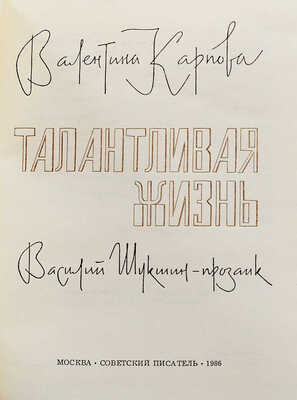 Валентина Карпова
ТАЛАНТЛИВАЯ
ЖИЗНЬ
Василий Шукшин-прозаик
МОСКВА • СОВЕТСКИЙ ПИСАТЕЛЬ • 1986